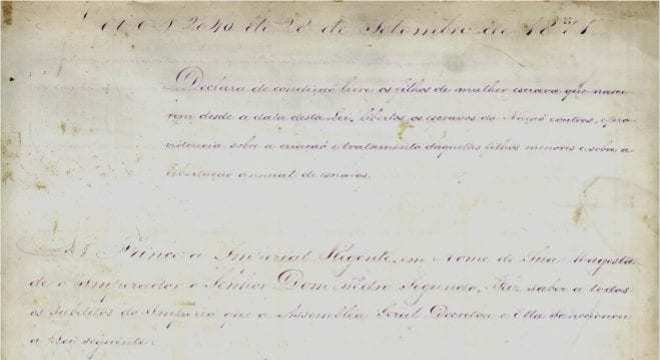 Lei N 2040 de 28 de Setembro de 1871
Declara de condição livre os filhos de mulher escrava que nasce-
rem desde a data desta Lei, libertos os escravos da Nação e outros, e pro-
videncia sobre a criação e tratamento daquelles filhos menores e sobre a
libertação annual de escravos.
A Princeza Imperial Regente, em Nome de Sua Magesta-
de o Imperador o Senhor Dom Pedro Segundo, Faz saber a todos
os subditos do Imperio que a Assembléa Geral Decretou e Ella Sanccionou
a Lei seguinte: